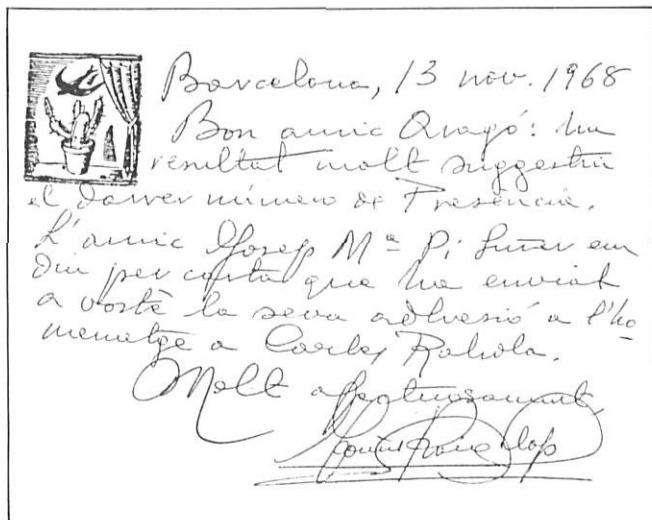 Barcelona, 13 nov. 1968
Bon amic Aragó: ha
resultat molt suggestiu
el darrer número de Presència.
L'amic Josep Mª Pi Suñer em
diu per carta que ha enviat
a vostè la seva adhesió a l'ho
menatge a Carles Rahola.
Molt afectuosament,